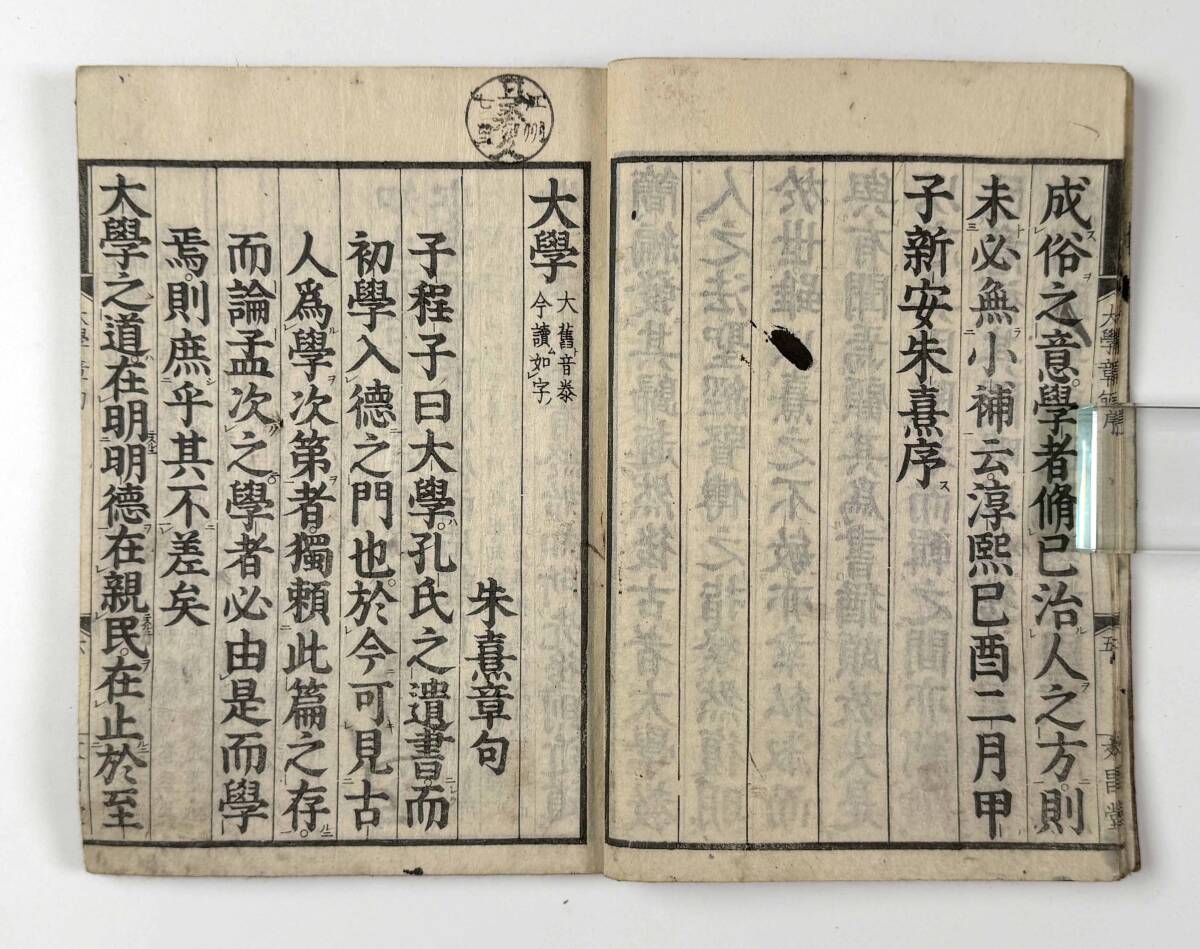 成俗之意學者脩己治人之方則
未必無小補云淳熙己酉二月甲
子新安朱熹序
大學章句序
五
大學 大舊音泰
今讀如字
朱熹章句
子程子曰大學孔氏之遺書而
初學入德之門也於今可見古
人爲學次第者獨賴此篇之存
而論孟次之學者必由是而學
焉則庶乎其不差矣
大學之道在明明德在親民在止於至